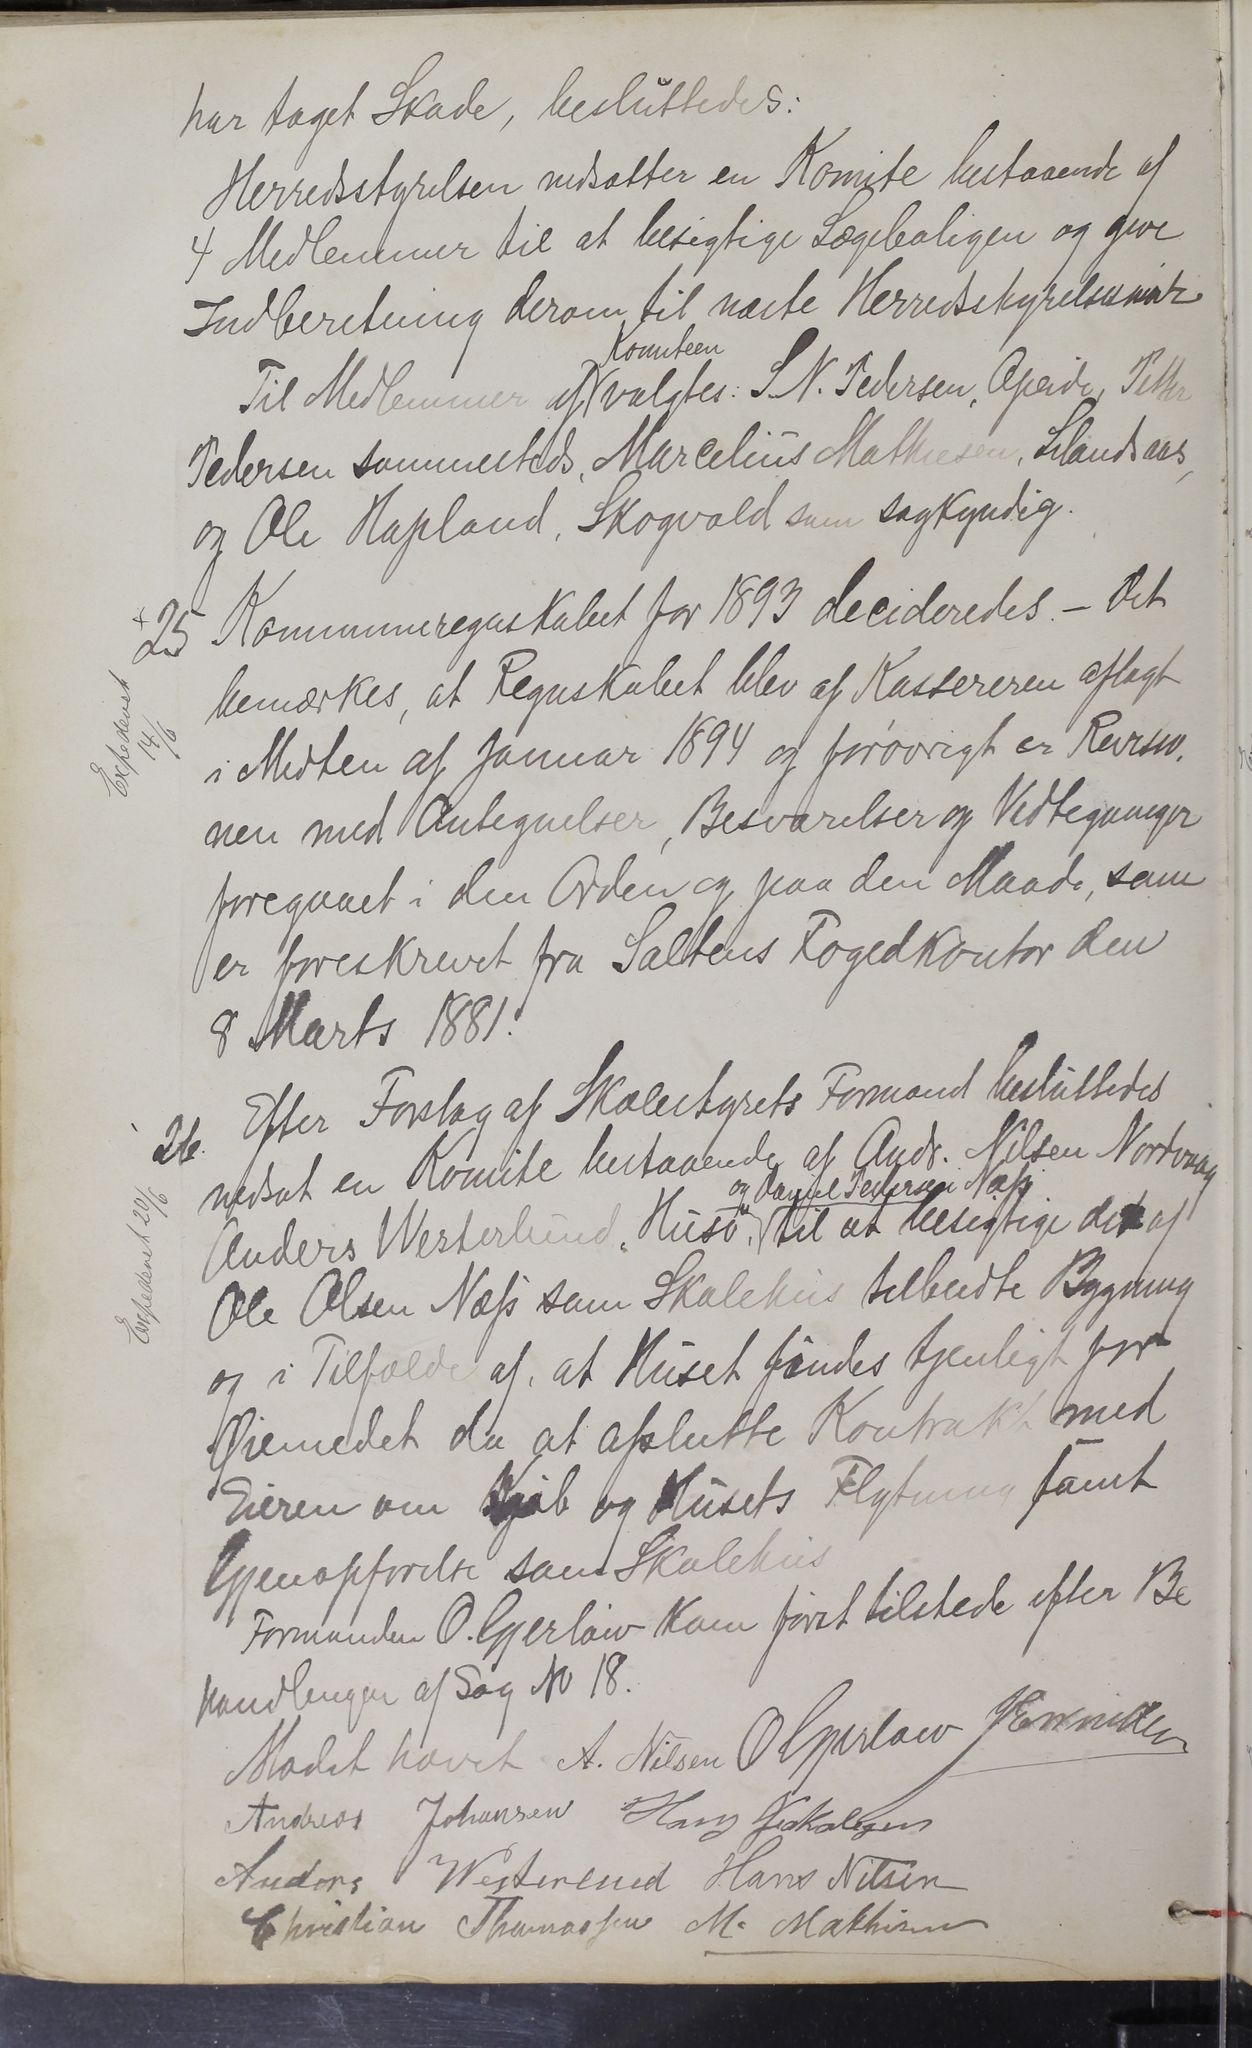 har taget Skade, besluttedes:
Herredsstyrelsen nedsætter en Komite bestaaende af
4 Medlemmer til at besigtige Lægeboligen og give
Indberetning derom til næste Herredsstyrelsesmøte
Komiteen
Til Medlemmer af valgtes: S. N. Pedersen, Apeide, Petter
Pedersen sammesteds, Marcelius Mathiesen,
og Ole Hapland, Skogvold som sagkyndig.
25 Kommuneregnskabet for 1893 decideredes. – Det
bemærkes, at Regnskabet blev af Kassereren aflagt
Expederet 14/6
i Midten af Januar 1894 og forøvrigt er Revisio-
nen med Antegnelser, Besvarelser og Vedtegninger
foregaaet i den Orden og paa den Maade, som
er foreskrevet fra Saltens Fogedkontor den
8 Marts 1881.
26. Efter Forslag af Skolestyrets Formand besluttedes
nedsat en Komite bestaaende af Andr. Nilsen Nordvaag
og Daniel Pedersen Næss
Anders Westerlund, Husö, til at besigtige det af
Expederet 20/6
Ole Olsen Næss som Skolehus tilbudte Bygning
og i Tilfælde af, at Huset findes tjenligt for
Øiemedet da at afslutte Kontrakt med
Eieren om Kjøb og Husets Flytning samt
Gjenopførelse som Skolehus
Formanden O. Gjerløw kom først tilstede efter Be
handlingen af Sag No 18.
Mødet hævet A. Nilsen O Gjerløw
Andreas Johansen Hans
Anders Westerlund Hans Nilsen
Christian Thomassen M. Mathisen